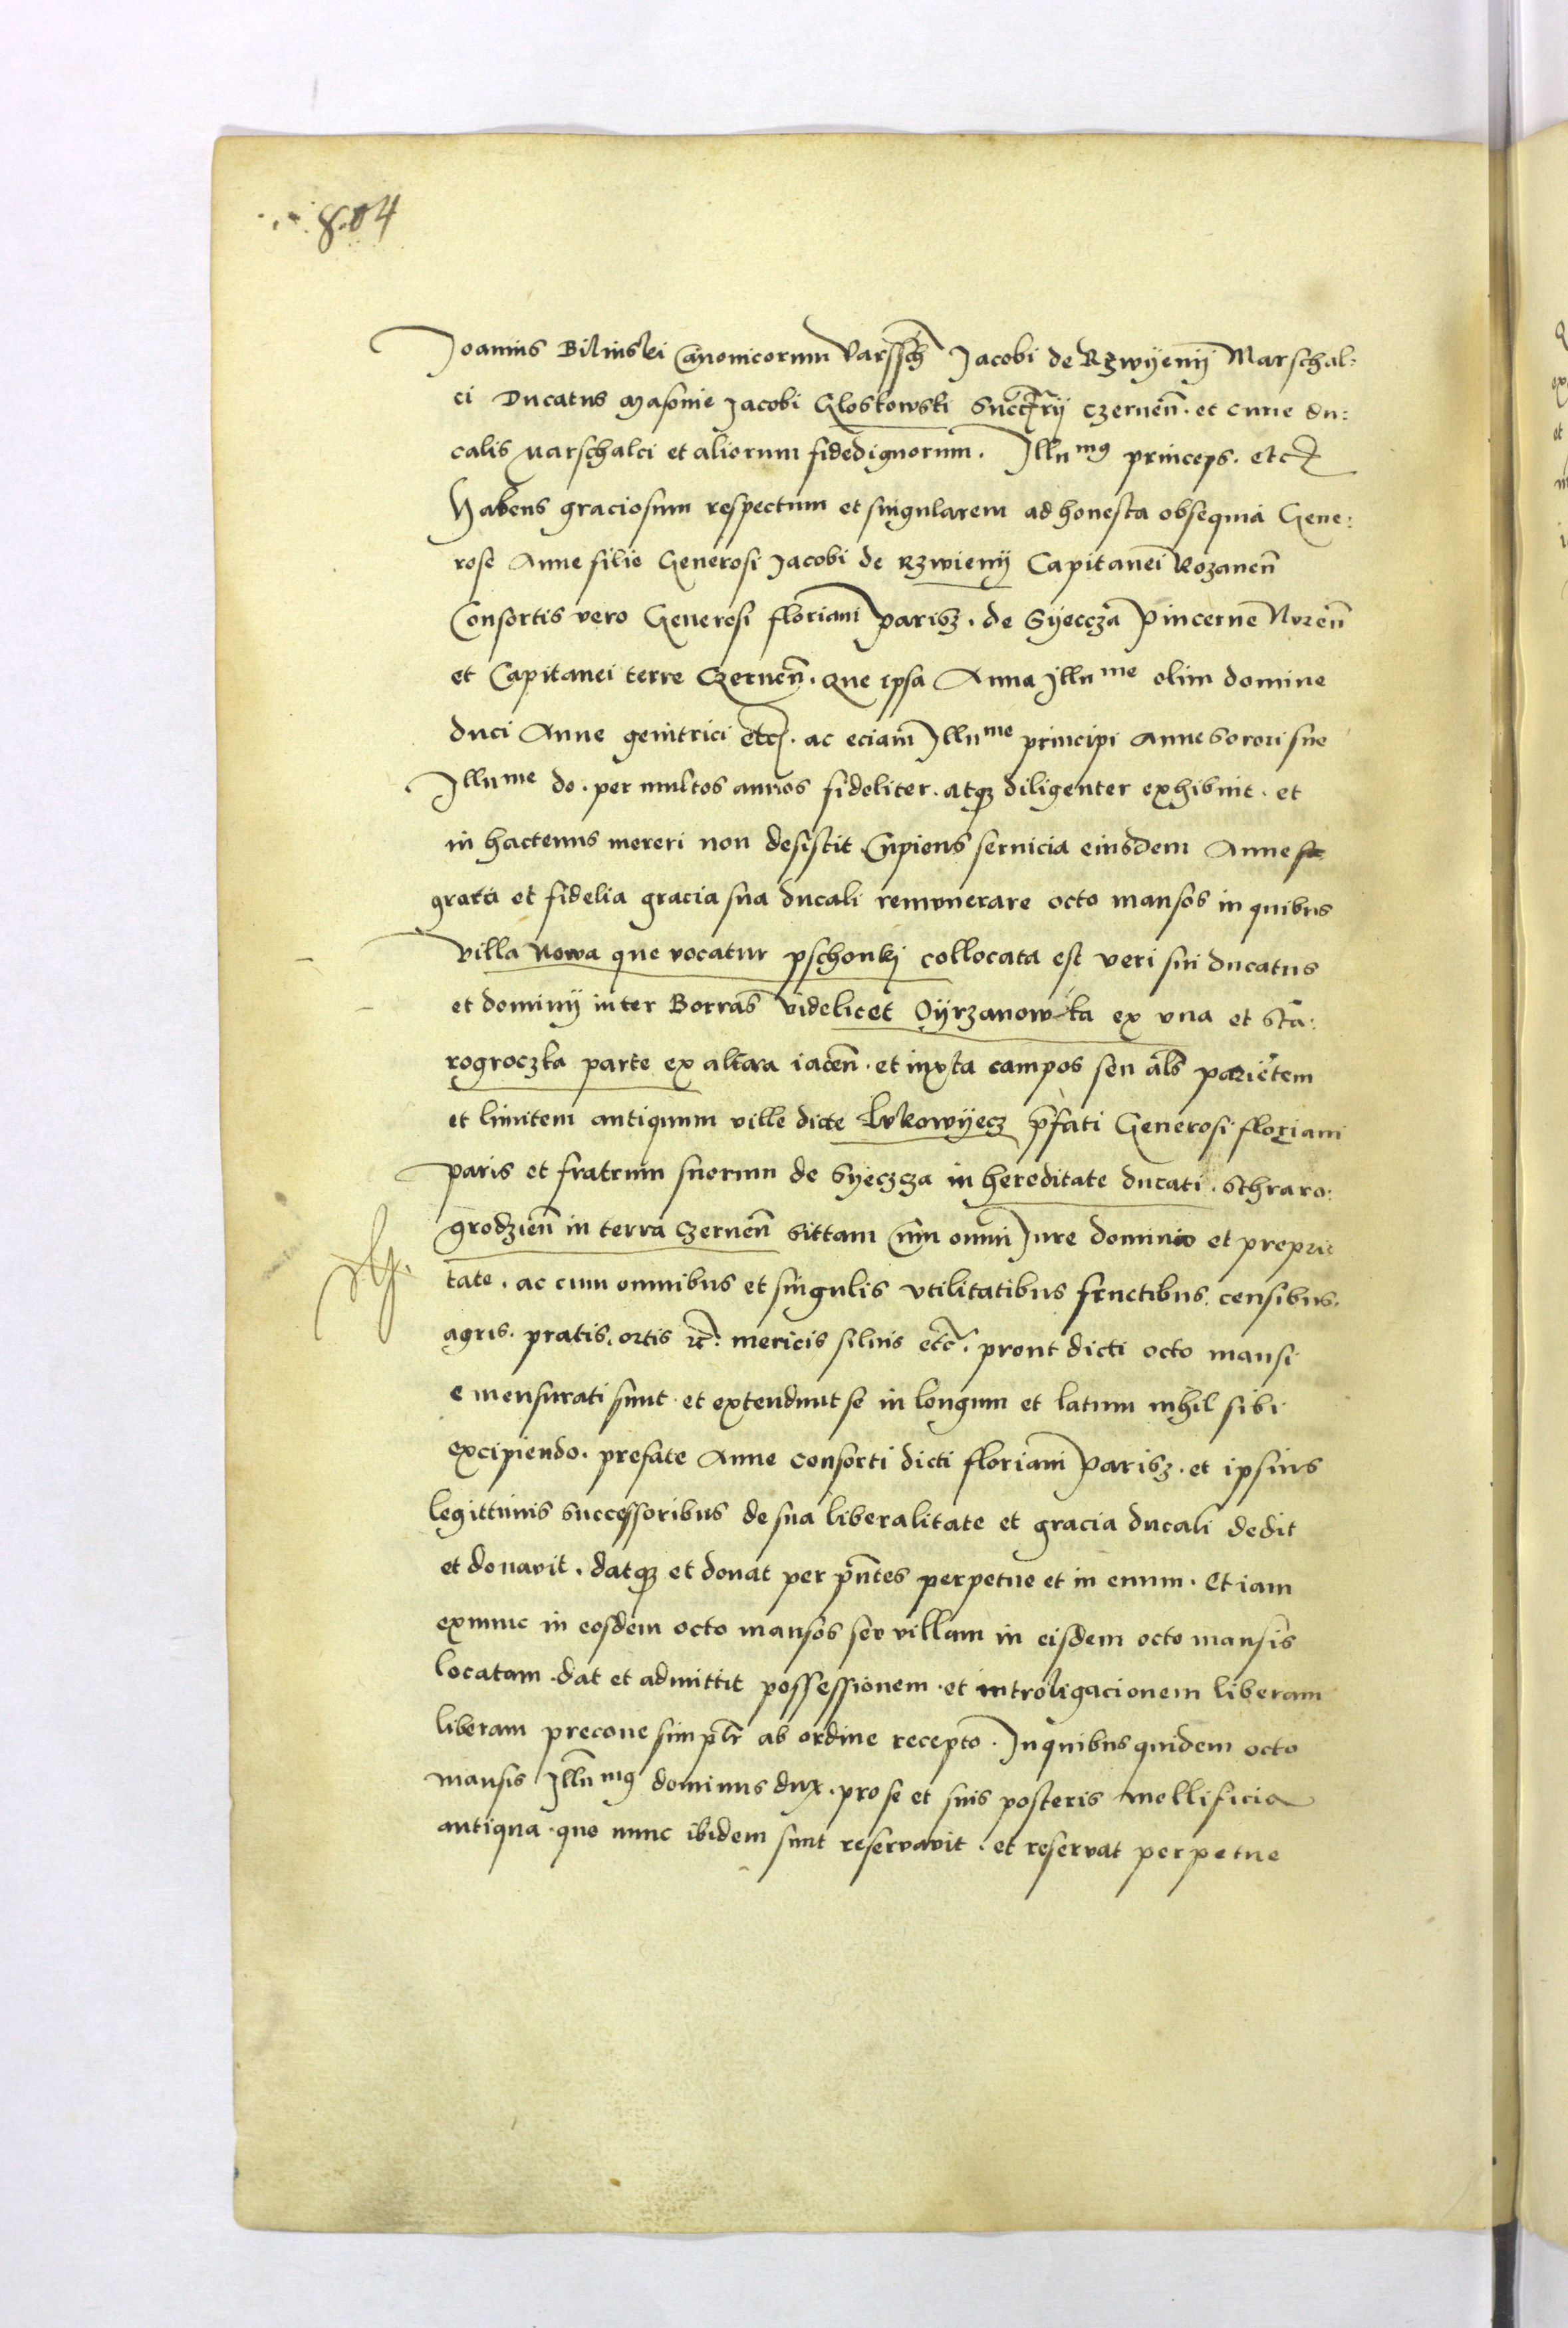 804
Joannis Bilinski Canonicorum Varssch Jacobi de Rzwyenij Marschal:
ci Ducatus Masovie Jacobi Gloskowski Succ̃rij Czernen̄. et curie du:
calis Marschalci et aliorum fidedignorum. Illumus princeps. etc
Habens graciosum respectum et singularem ad honesta obsequia Gene:
rose Anne filie Generosi Jacobi de Rzwienij Capitanei Rozanen̄
Consortis vero Generosi floriani parisz. de Syeccza Pincerne Nuren̄
et Capitanei terre Czernen̄. que ipsa Anna Illume olim domine
duci Anne genitrici etc. ac eciam Illume principi Anne Sorori sue
Illume do. per multos annos fideliter. atq3 diligenter exhibuit. et
in hactenus mereri non desistit Cupiens servicia eiusdem Anne
grata et fidelia gracia sua ducali remunerare octo mansos in quibus
villa nowa que vocatur pschonki collocata est veri sui ducatus
et dominij inter Borras videlicet Oyrzanowska ex una et Sta:
rogroczka parte ex altera iacen̄. et iuxta campos seu al̄s parietem
et limitem antiquum ville dicte Lvkowyecz p̄fati Generosi floriani
paris et fratrum suorum de Syeczcza in hereditate ducati. Sthraro:
grodzien̄ in terra Czernen̄ Sittam Cum omni Jure dominio et proprie
tate. ac cum omnibus et singulis utilitatibus fructibus. censibus.
agris. pratis. ortis rc̄. mericis silvis etc̄. prout dicti octo mansi
emensurati sunt. et extendunt se in longum et latum nihil sibi
excipiendo. prefate Anne consorti dicti floriani Parisz. et ipsius
legittimis successoribus de sua liberalitate et gracia ducali dedit
et donavit. datq3 et donat per p̄ntes perpetue et in evum. Et iam
exnunc in eosdem octo mansos seo villam in eisdem octo mansis
locatam. dat et admittit possessionem. et introligacionem liberam
liberam precone simpl̄r ab ordine recepto. In quibus quidem octo
mansis Illumus dominus dux. pro se et suis posteris mellificia
antiqua. que nunc ibidem sunt reservavit. et reservat perpetue